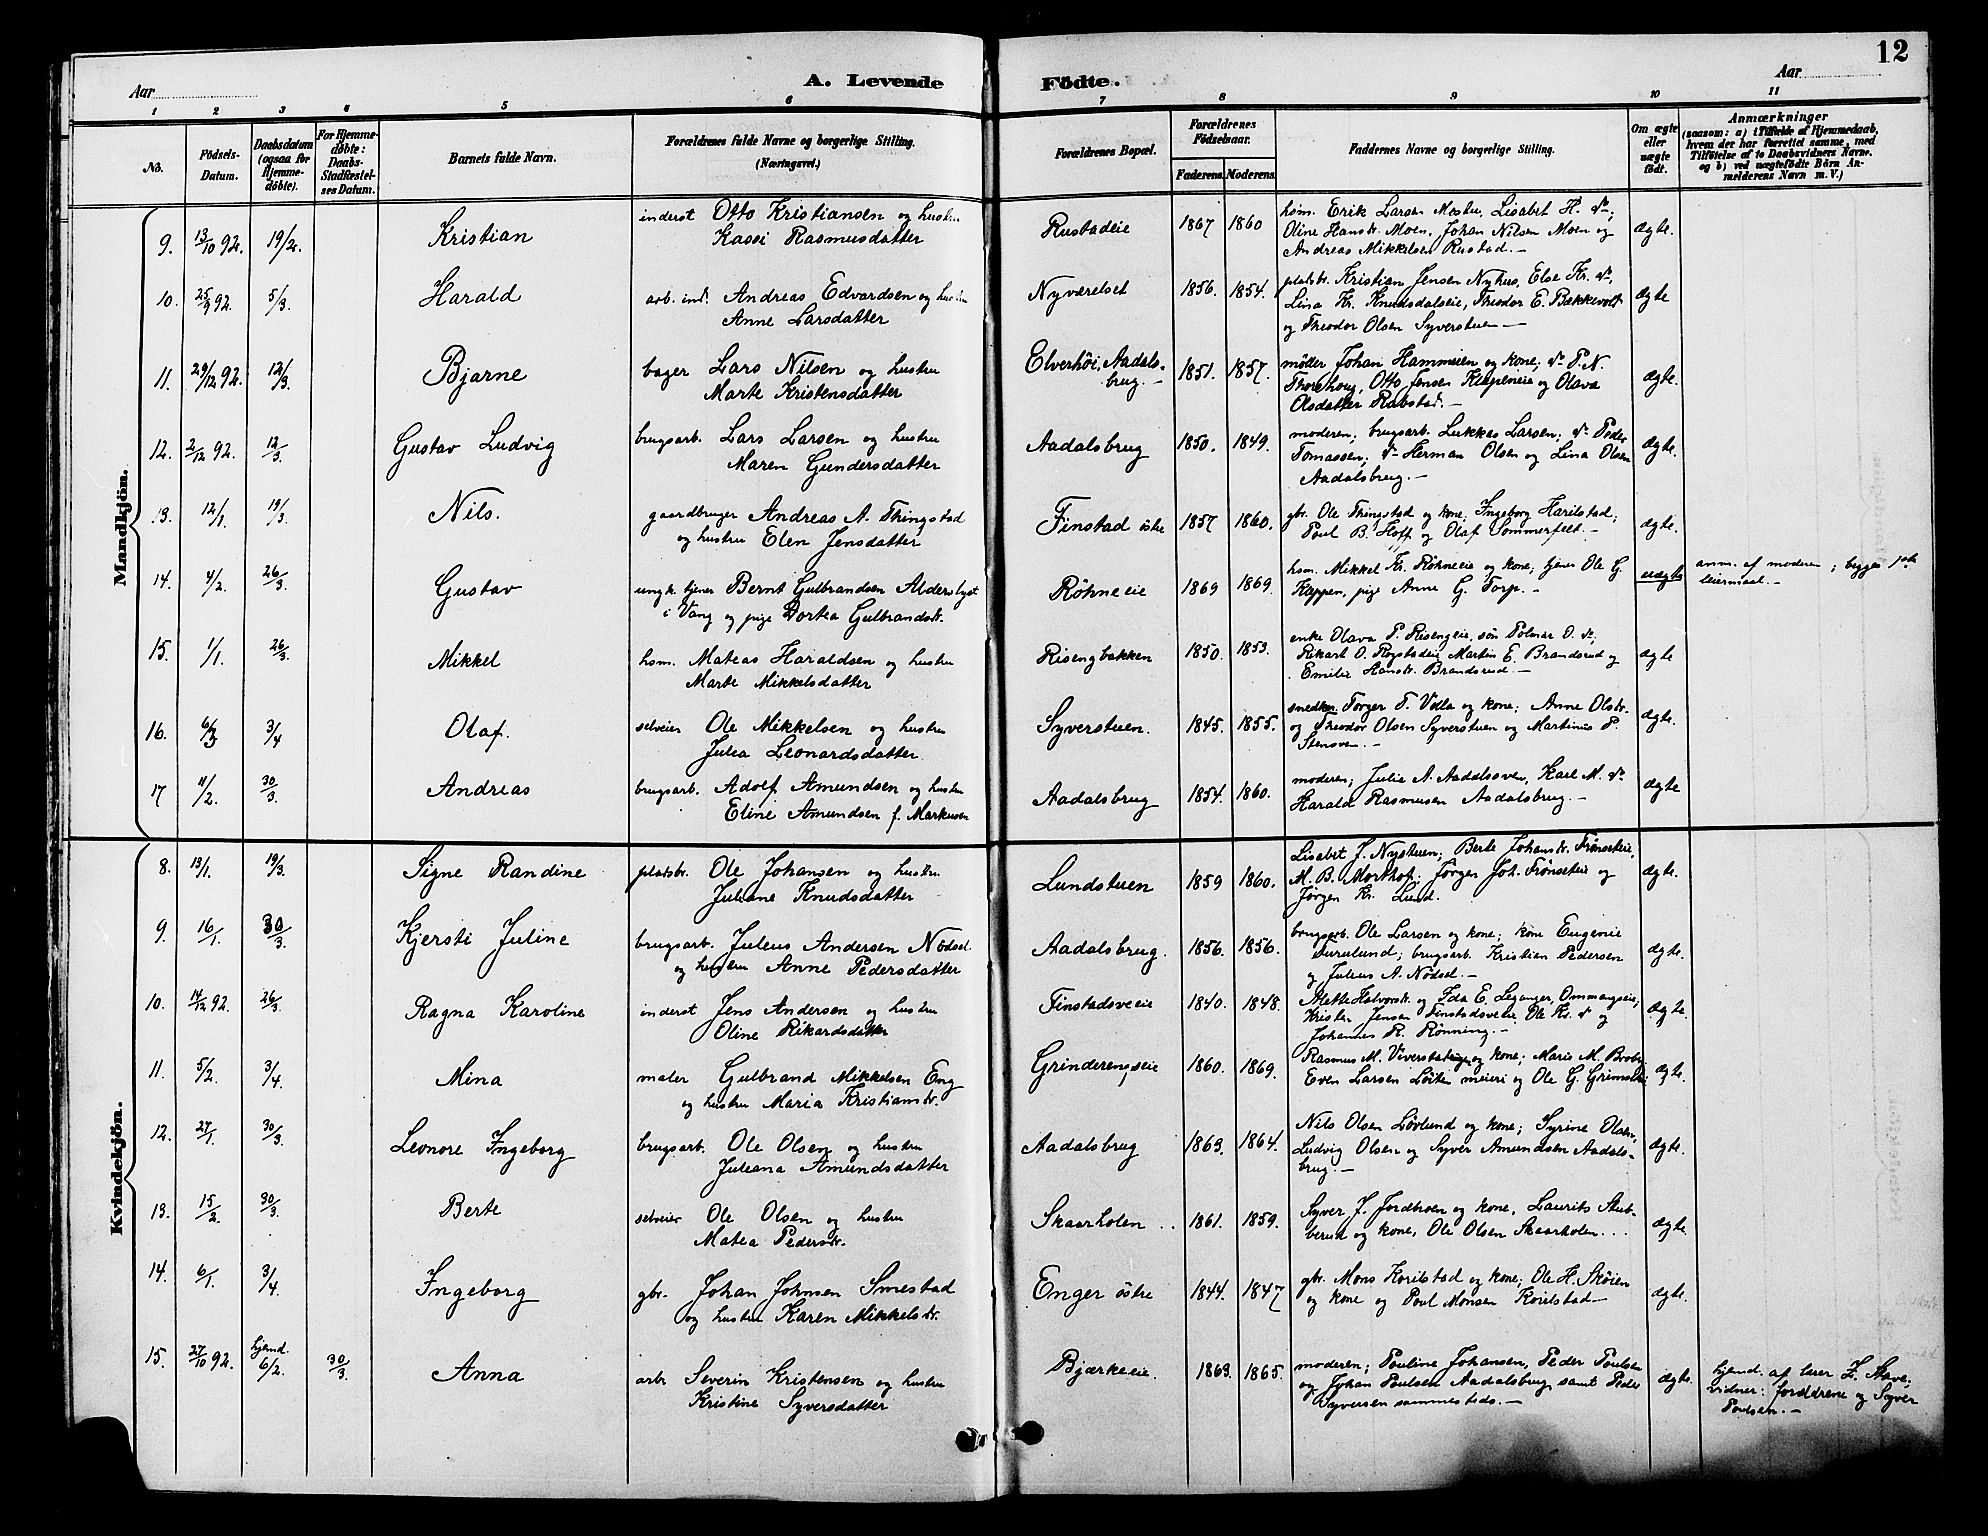 12
A. Levende Födte.
Aar
Aar
1 2 3 4 5 6 7 8 9 10 11
No.
Födsels-Datum.
Daabsdatum (ogsaa for Hjemme-döbte).
For Hjemme-döbte: Daabs-Stadfæstel-ses Datum.
Barnets fulde Navn.
Forældrenes fulde Navne og borgerlige Stilling. (Næringsvei.)
Forældrenes Bopæl.
Forældrenes Födselsaar.
Faderens. Moderens.
Faddernes Navne og borgerlige Stilling.
Om ægte eller uægte födt.
Anmærkninger
(saasom: a) i Tilfælde af Hjemmedaab, hvem der har forrettet samme, med Tilföielse af to Daabsvidners Navne, og b) ved uægtefödte Börn An-melderens Navn m. V.)
Mandkjön.
9. 13/10 92. 19/2. Kristian inderst Otto Kristiansen og hustru
Kassi Rasmusdatter Rustadeie 1867 1860 hsm. Erik Larsen Mester, Lisabet H. do;
Oline Hansdr. Moen, Johan Nilsen Moen og
Andreas Mikkelsen Rustad. ægte.
10. 25/9 92. 5/3. Harald arb. ind. Andreas Edvardsen og hustru
Anne Larsdatter Nyværelset 1856. 1854. pladsbr. Kristian Jensen Nyhus, Else Kr. do,
Lina Kr. Knudsdalseie, Theodor E. Bakkevolt
og Theodor Olsen Syverstuen ægte
11. 29/12 92. 12/3. Bjarne bager Lars Nilsen og hustru
Marte Kristensdatter Elverhöi, Aadals-
brug. 1851. 1857. möller Johan Hammeren og kone; do P. N.
Thorshoug, Otto Jensen Kleppeneie og Olava
Olsdatter Rabstad. ægte.
12. 2/12 92. 12/3. Gustav Ludvig brugsarb. Lars Larsen og hustru
Maren Gundersdatter Aadalsbrug 1850. 1849. moderen; brugsarb. Lukkas Larsen; do Peder
Tomassen; do Herman Olsen og Lina Olsen
Aadalsbrug. ægte.
13. 12/1. 19/3. Nils. gaardbruger Andreas A. Thingstad
og hustru Elen Jensdatter Finstad östre 1857 1860. gbr. Ole Thingstad og kone, Ingeborg Harilstad;
Poul B. Hoff og Olaf Sommerfelt. ægte.
14. 4/2. 26/3. Gustav ungk. tjener Bernt Gulbrandsen Alderslyst
i Vang og pige Dortea Gulbrandsdr. Röhneeie 1869 1869. hsm. Mikkel Kr. Röhneeie og kone; tjener Ole G.
Kappen, pige Anne G. Torp. uægte anm. af moderen; begges 1ste
leiermaal.
15. 1/1. 26/3. Mikkel hsm. Mateas Haraldsen og hustru
Marte Mikkelsdatter Risengbakken 1850. 1853. enke Olava P. Risengeie, sön Polmar O. do;
Rikart O. Rogstadeie Martin E. Brandsrud og
Emilie Hansdr. Brandsrud. ægte
16. 6/3 3/4 Olaf. selveier Ole Mikkelsen og hustru
Julea Leonardsdatter Syverstuen. 1845. 1855. snedker Torger T. Vidla og kone; Anne Olsdr.
og Theodor Olsen Syverstuen og Martinus P.
Stensven. ægte.
17 11/2. 30/3. Andreas brugsarb. Adolf Amundsen og hustru
Eline Amundsen f. Markusen Aadalsbrug 1854. 1860. moderen; Julie A. Aadalsoven, Karl M. do
Harald Rasmusen Aadalsbrug. ægte
Kvindekjön.
8. 13/1. 19/3. Signe Randine pladsbr. Ole Johansen og hustru
Juliane Knudsdatter Lundstuen 1859 1860. Lisabet J. Nystuen; Berte Johansdr. Frönseteie,
M. B. Morthof; Jörgen Joh. Frönseteie og
Jörgen Kr. Lund. ægte.
9. 16/1. 30/3. Kjersti Juline brugsarb. Juleus Andersen Nödsel
og hustru Anne Pedersdatter Aadalsbrug. 1856. 1856. brugsarb. Ole Larsen og kone; kone Eugenie
Furulund; brugsarb. Kristian Pedersen
og Juleus A. Nödsel. ægte.
10. 14/12 92. 26/3. Ragna Karoline inderst Jens Andersen og hustru
Oline Rikardsdatter Finstadsveie 1840. 1848. Mette Halvorsdr. og Ida E. Leganger, Ommangseie;
Kristen Jensen Finstadsveie Ole Kr. do og
Johannes R. Rönning. ægte.
11. 5/2. 3/4. Mina maler Gulbrand Mikkelsen Eng
og hustru Maria Kristiansdr. Grinderengseie 1860. 1869. Rasmus M. og kone; Maris M. Broby
Even Larsen Löiten meieri og Ole G. ægte.
12. 27/1. 30/3. Leonore Ingeborg brugsarb. Ole Olsen og hustru
Juleana Amundsdatter Aadalsbrug 1863. 1864. Nils Olsen Lövlund og kone; Syrine Olsen,
Ludvig Olsen og Syver Amundsen Aadals-
brug. ægte.
13. 15/2. 30/3. Berte selveier Ole Olsen og hustru
Matea Pedersdr. Skaarholen 1861. 1859. Syver J. Jordbroen og kone, Laurits Stub-
berud og kone, Ole Olsen Skaarholen ægte
14. 6/1. 3/4. Ingeborg gbr. Johan Johnsen Smestad
og hustru Karen Mikkelsdr. Enger östre 1844. 1847 gbr. Mons Korilstad og kone; Ole H. Sköien
og kone og Poul Monsen Korilstad ægte.
15. 27/10 92. hjemd. 6/2. 30/3. Anna arb. Severin Kristensen og hustru
Kristine Syversdatter Bjærkeeie. 1863. 1865. moderen; Pouline Johansen, Peder Poulsen
og Johan Poulsen Aadalsbrug, samt Peder
Syversen sammesteds. ægte. hjemd. af lærer Z. Stave,
vidner: forældrene og Syver
Poulsen.